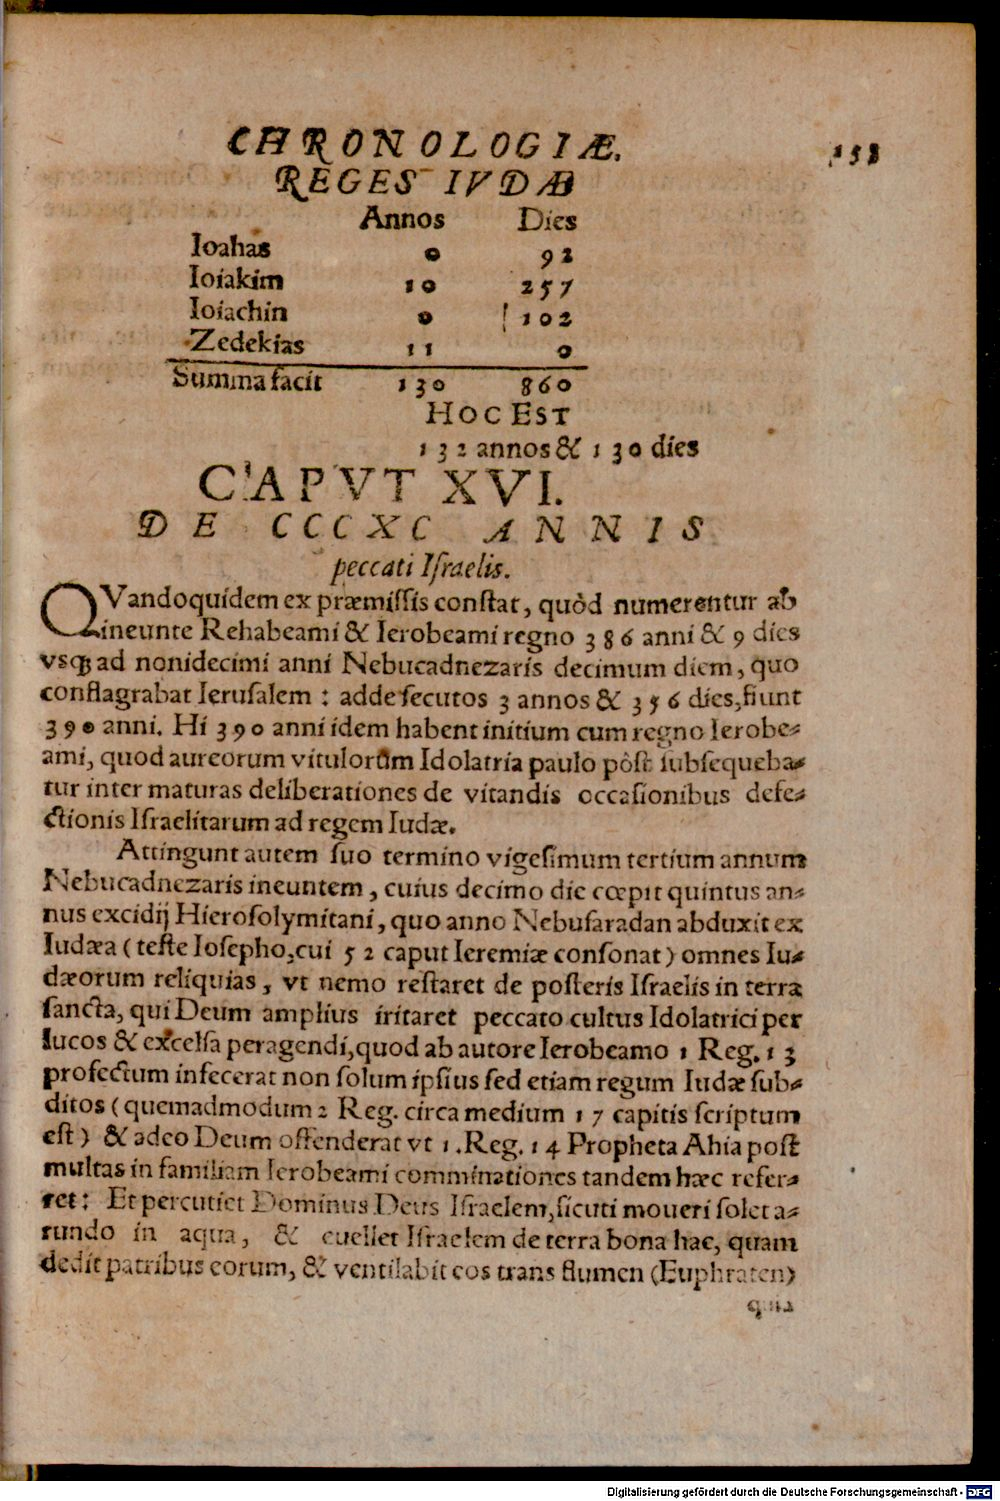 CHRONOLOGIÆ.
158
REGES IVDAE
Annos Dies
Ioahas 0 92
Ioiakim 10 257
Ioiachin 0 102
Zedekias 11 0
Summa facit 130 860
HOC EST
132 annos & 130 dies
CAPVT XVI.
DE CCCXC ANNIS
peccati Iſraelis.
QVandoquidem ex præmiſſis conſtat, quòd numerentur ab
ineunte Rehabeami & Ierobeami regno 386 anni & 9 dies
vsq; ad nonidecimi anni Nebucadnezaris decimum diem, quo
conflagrabat Ieruſalem: adde ſecutos 3 annos & 356 dies, fiunt
390 anni. Hi 390 anni idem habent initium cum regno Ierobe-
ami, quod aureorum vitulorum Idolatria paulo pòſt ſubſequeba-
tur inter maturas deliberationes de vitandis occaſionibus defe-
ctionis Iſraelitarum ad regem Iudæ.
Attingunt autem ſuo termino vigeſimum tertium annum
Nebucadnezaris ineuntem, cuius decimo die cœpit quintus an-
nus excidij Hieroſolymitani, quo anno Nebuſaradan abduxit ex
Iudæa (teſte Ioſepho, cui 52 caput Ieremiæ conſonat) omnes Iu-
dæorum reliquias, vt nemo reſtaret de poſteris Iſraelis in terra
ſancta, qui Deum amplius iritaret peccato cultus Idolatrici per
lucos & excelſa peragendi, quod ab autore Ierobeamo 1 Reg. 13
profectum infecerat non ſolum ipſius ſed etiam regum Iudæ ſub-
ditos (quemadmodum 2 Reg. circa medium 17 capitis ſcriptum
eſt) & adeo Deum offenderat vt 1. Reg. 14 Propheta Ahia poſt
multas in familiam Ierobeami comminationes tandem hæc refer-
ret: Et percutiet Dominus Deus Iſraelem, ſicuti moueri ſolet a-
rundo in aqua, & euellet Iſraelem de terra bona hac, quam
dedit patribus eorum, & ventilabit eos trans flumen (Euphraten)
quia
Digitalisierung gefördert durch die Deutsche Forschungsgemeinschaft - DFG